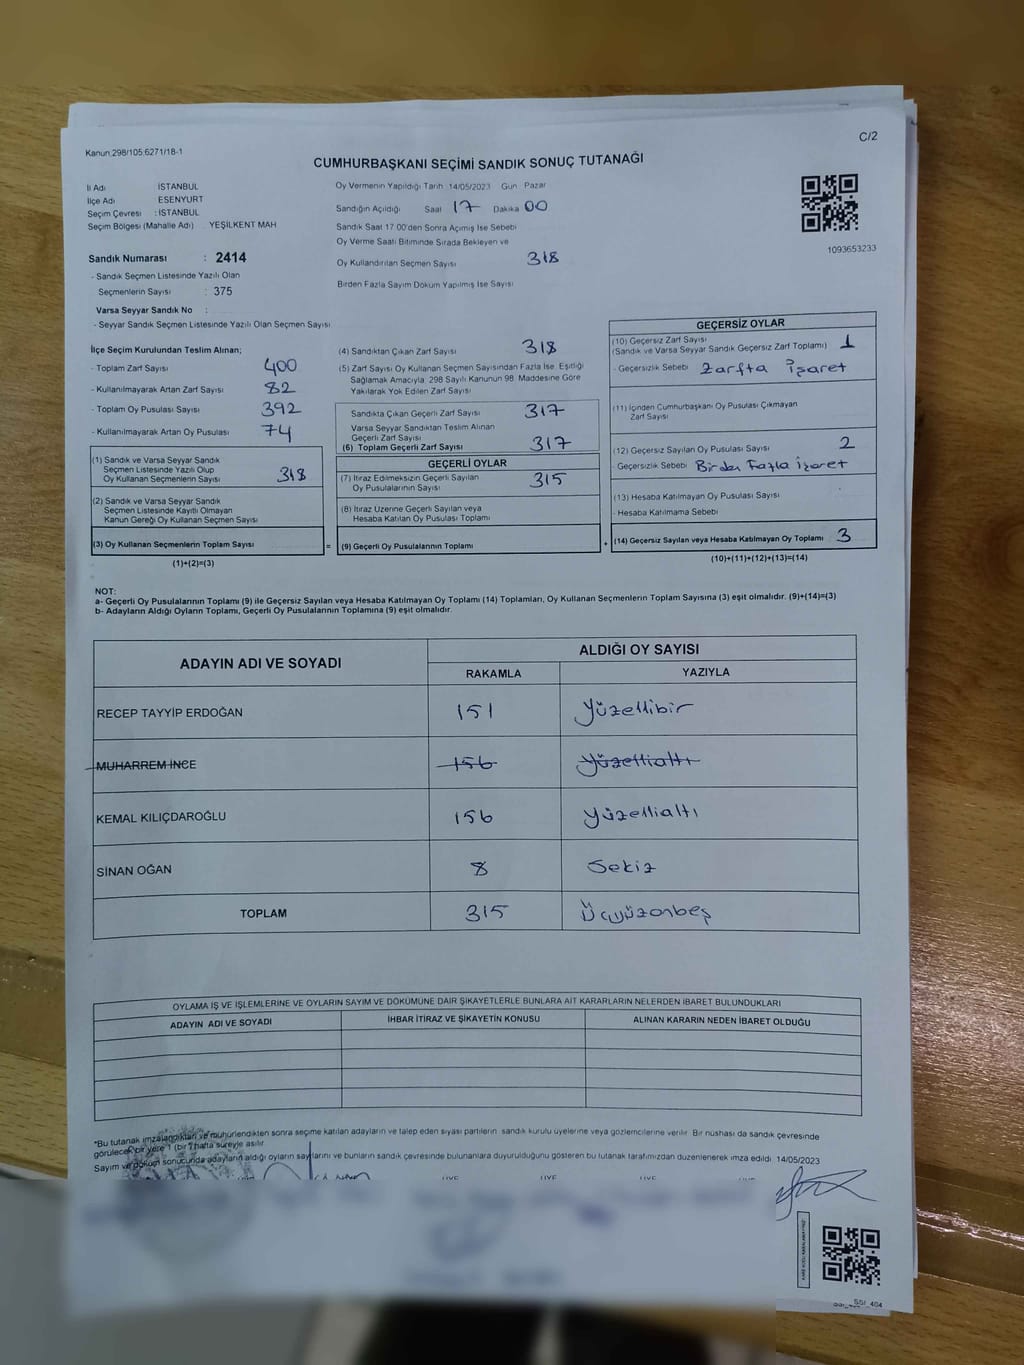 C/2
Kanun 298/105;6271/18-1
CUMHURBAŞKANI SEÇİMİ SANDIK SONUÇ TUTANAĞI
İl Adı İSTANBUL
İlçe Adı ESENYURT
Seçim Çevresi : İSTANBUL
Seçim Bölgesi (Mahalle Adı) YEŞİLKENT MAH
Sandık Numarası : 2414
- Sandık Seçmen Listesinde Yazılı Olan
Seçmenlerin Sayısı : 375
Varsa Seyyar Sandık No :
- Seyyar Sandık Seçmen Listesinde Yazılı Olan Seçmen Sayısı
Oy Vermenin Yapıldığı Tarih 14/05/2023 Gün Pazar
Sandığın Açıldığı Saat 17 Dakika 00
Sandık Saat 17.00'den Sonra Açılmış İse Sebebi
Oy Verme Saati Bitiminde Sırada Bekleyen ve
Oy Kullandırılan Seçmen Sayısı 318
Birden Fazla Sayım Döküm Yapılmış İse Sayısı
1093653233
İlçe Seçim Kurulundan Teslim Alınan;
- Toplam Zarf Sayısı 400
- Kullanılmayarak Artan Zarf Sayısı 82
- Toplam Oy Pusulası Sayısı 392
- Kullanılmayarak Artan Oy Pusulası 74
(1) Sandık ve Varsa Seyyar Sandık
Seçmen Listesinde Yazılı Olup
Oy Kullanan Seçmenlerin Sayısı 318
(2) Sandık ve Varsa Seyyar Sandık
Seçmen Listesinde Kayıtlı Olmayan
Kanun Gereği Oy Kullanan Seçmen Sayısı
(3) Oy Kullanan Seçmenlerin Toplam Sayısı =
(1)+(2)=(3)
(4) Sandıktan Çıkan Zarf Sayısı 318
(5) Zarf Sayısı Oy Kullanan Seçmen Sayısından Fazla İse, Eşitliği
Sağlamak Amacıyla 298 Sayılı Kanunun 98. Maddesine Göre
Yakılarak Yok Edilen Zarf Sayısı
Sandıkta Çıkan Geçerli Zarf Sayısı 317
Varsa Seyyar Sandıktan Teslim Alınan
Geçerli Zarf Sayısı
(6) Toplam Geçerli Zarf Sayısı 317
GEÇERLİ OYLAR
(7) İtiraz Edilmeksizin Geçerli Sayılan
Oy Pusulalarının Sayısı 315
(8) İtiraz Üzerine Geçerli Sayılan veya
Hesaba Katılan Oy Pusulası Toplamı
(9) Geçerli Oy Pusulalarının Toplamı +
GEÇERSİZ OYLAR
(10) Geçersiz Zarf Sayısı
(Sandık ve Varsa Seyyar Sandık Geçersiz Zarf Toplamı) 1
- Geçersizlik Sebebi Zarfta İşaret
(11) İçinden Cumhurbaşkanı Oy Pusulası Çıkmayan
Zarf Sayısı
(12) Geçersiz Sayılan Oy Pusulası Sayısı 2
- Geçersizlik Sebebi Birden Fazla İşaret
(13) Hesaba Katılmayan Oy Pusulası Sayısı
- Hesaba Katılmama Sebebi
(14) Geçersiz Sayılan veya Hesaba Katılmayan Oy Toplamı 3
(10)+(11)+(12)+(13)=(14)
NOT:
a- Geçerli Oy Pusulalarının Toplamı (9) ile Geçersiz Sayılan veya Hesaba Katılmayan Oy Toplamı (14) Toplamları, Oy Kullanan Seçmenlerin Toplam Sayısına (3) eşit olmalıdır. (9)+(14)=(3)
b- Adayların Aldığı Oyların Toplamı, Geçerli Oy Pusulalarının Toplamına (9) eşit olmalıdır.
ADAYIN ADI VE SOYADI
ALDIĞI OY SAYISI
RAKAMLA YAZIYLA
RECEP TAYYİP ERDOĞAN 151 Yüzellibir
MUHARREM İNCE 156 Yüzellialtı
KEMAL KILIÇDAROĞLU 156 Yüzellialtı
SİNAN OĞAN 8 Sekiz
TOPLAM 315 Üçyüzonbeş
OYLAMA İŞ VE İŞLEMLERİNE VE OYLARIN SAYIM VE DÖKÜMÜNE DAİR ŞİKAYETLERLE BUNLARA AİT KARARLARIN NELERDEN İBARET BULUNDUKLARI
ADAYIN ADI VE SOYADI İHBAR İTİRAZ VE ŞİKAYETİN KONUSU ALINAN KARARIN NEDEN İBARET OLDUĞU
*Bu tutanak imzalandıktan ve mühürlendikten sonra seçime katılan adayların ve talep eden siyasi partilerin sandık kurulu üyelerine veya gözlemcilerine verilir. Bir nüshası da sandık çevresinde
görülecek bir yere 1 (bir) hafta süreyle asılır.
Sayım ve döküm sonucunda adayların aldığı oyların sayılarını ve bunların sandık çevresinde bulunanlara duyurulduğunu gösteren bu tutanak tarafımızdan düzenlenerek imza edildi. 14/05/2023